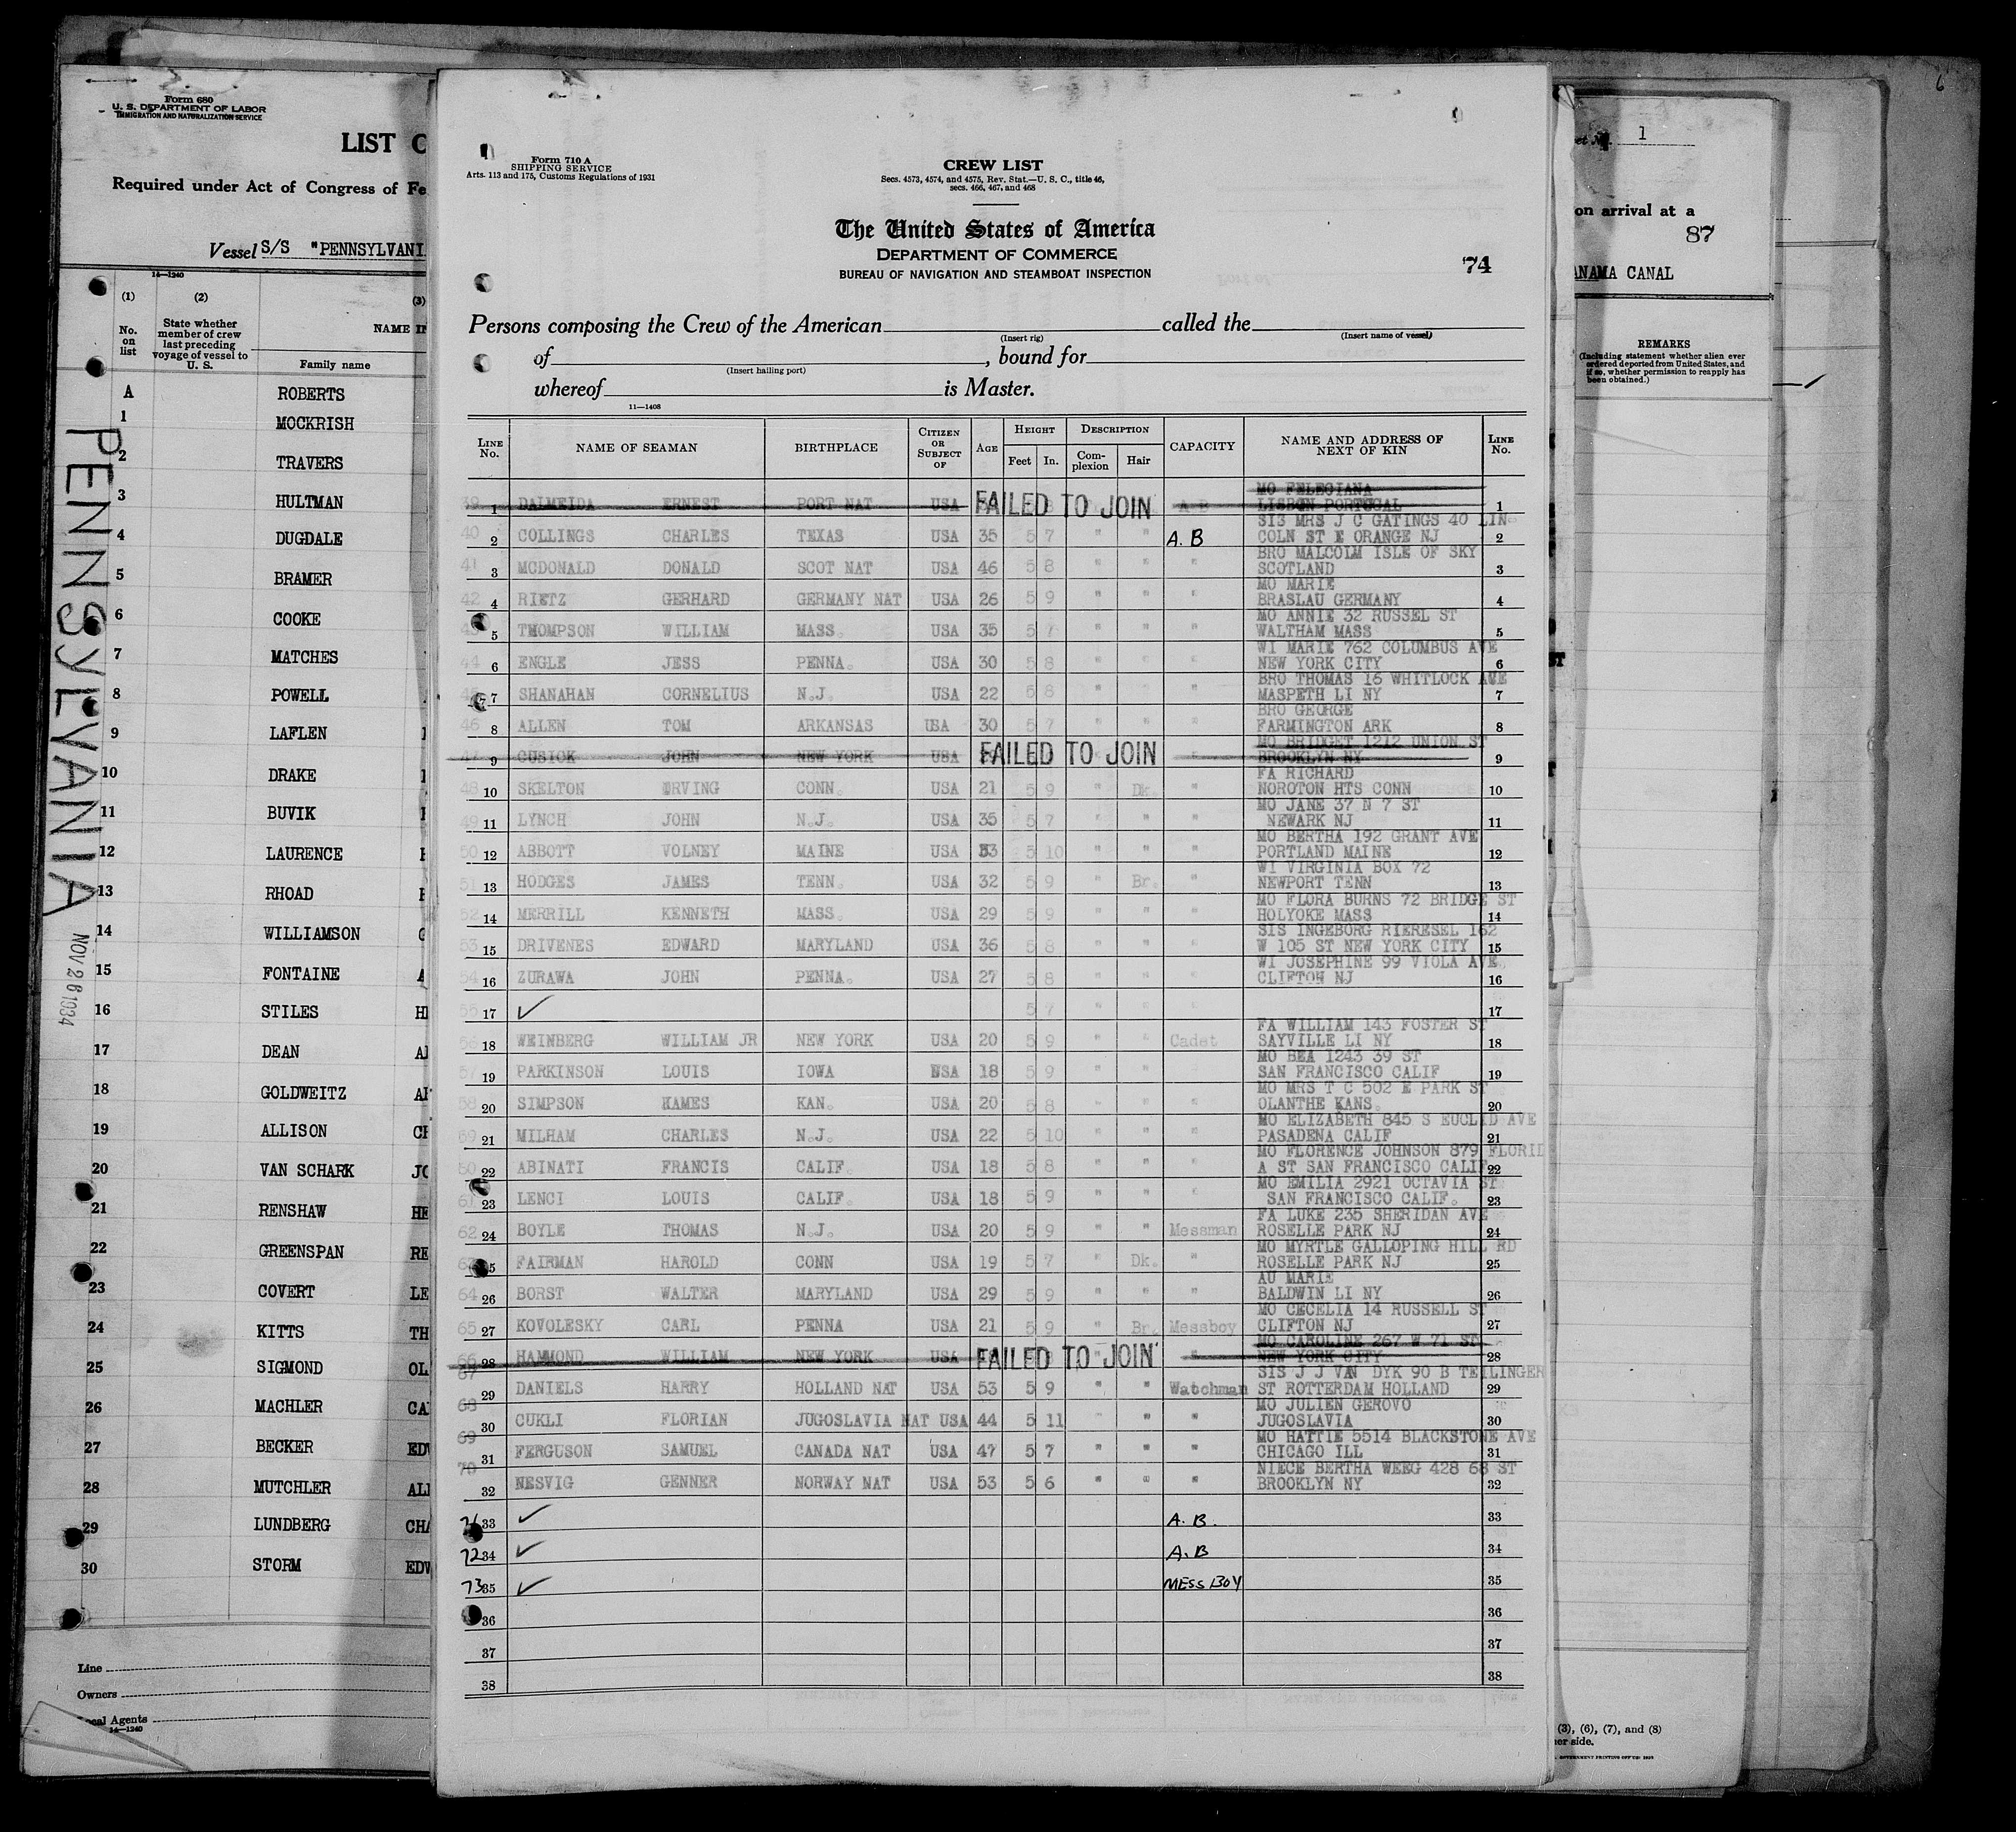 Form 680
U. S. DEPARTMENT OF LABOR
IMMIGRATION AND NATURALIZATION SERVICE
LIST
Required under Act of Congress of Fe
Vessel S/S "PENNSYLVANI
14—1240
(1) (2) (3)
No. on list State whether member of crew last preceding voyage of vessel to U. S. NAME IN
Family name
A ROBERTS
1 MOCKRISH
2 TRAVERS
3 HULTMAN
4 DUGDALE
5 BRAMER
6 COOKE
7 MATCHES
8 POWELL
9 LAFLEN
10 DRAKE
11 BUVIK
12 LAURENCE
13 RHOAD
14 WILLIAMSON
15 FONTAINE
16 STILES
17 DEAN
18 GOLDWEITZ
19 ALLISON
20 VAN SCHARK JO
21 RENSHAW HE
22 GREENSPAN RE
23 COVERT LE
24 KITTS TH
25 SIGMOND OL
26 MACHLER CA
27 BECKER EDW
28 MUTCHLER ALI
29 LUNDBERG CHA
30 STORM EDW
Line
Owners
Local Agents
14—1240
PENNSYLVANIA
NOV 26 1934
Form 710 A
SHIPPING SERVICE
Arts. 113 and 175, Customs Regulations of 1931
CREW LIST
Secs. 4573, 4574, and 4575, Rev. Stat.—U. S. C., title 46,
secs. 466, 467, and 468
The United States of America
DEPARTMENT OF COMMERCE
BUREAU OF NAVIGATION AND STEAMBOAT INSPECTION
74
Persons composing the Crew of the American called the
(Insert rig) (Insert name of vessel)
of , bound for
(Insert hailing port)
whereof is Master.
11—1408
LINE No. NAME OF SEAMAN BIRTHPLACE CITIZEN OR SUBJECT OF AGE HEIGHT Feet In. DESCRIPTION Complexion Hair CAPACITY NAME AND ADDRESS OF NEXT OF KIN LINE No.
39 1 DALMEIDA ERNEST PORT NAT USA FAILED TO JOIN A B MO FELECIANA LISBON PORTUGAL 1
40 2 COLLINGS CHARLES TEXAS USA 35 5 7 " " A. B SIS MRS J C GATINGS 40 LINCOLN ST E ORANGE NJ 2
41 3 MCDONALD DONALD SCOT NAT USA 46 5 8 " " " BRO MALCOLM ISLE OF SKY SCOTLAND 3
42 4 RIETZ GERHARD GERMANY NAT USA 26 5 9 " " " MO MARIE BRASLAU GERMANY 4
43 5 THOMPSON WILLIAM MASS. USA 35 5 7 " " " MO ANNIE 32 RUSSEL ST WALTHAM MASS 5
44 6 ENGLE JESS PENNA. USA 30 5 8 " " " WI MARIE 762 COLUMBUS AVE NEW YORK CITY 6
7 SHANAHAN CORNELIUS N.J. USA 22 5 8 " " " BRO THOMAS 16 WHITLOCK AVE MASPETH LI NY 7
46 8 ALLEN TOM ARKANSAS USA 30 5 7 " " " BRO GEORGE FARMINGTON ARK 8
47 9 CUSICK JOHN NEW YORK USA FAILED TO JOIN " MO BRIDGET 1212 UNION ST BROOKLYN NY 9
48 10 SKELTON IRVING CONN. USA 21 5 9 " Dk. " FA RICHARD NOROTON HTS CONN 10
49 11 LYNCH JOHN N.J. USA 35 5 7 " " " MO JANE 37 N 7 ST NEWARK NJ 11
50 12 ABBOTT VOLNEY MAINE USA 33 5 10 " " " MO BERTHA 192 GRANT AVE PORTLAND MAINE 12
51 13 HODGES JAMES TENN. USA 32 5 9 " Br. " WI VIRGINIA BOX 72 NEWPORT TENN 13
52 14 MERRILL KENNETH MASS. USA 29 5 9 " " " MO FLORA BURNS 72 BRIDGE ST HOLYOKE MASS 14
53 15 DRIVENES EDWARD MARYLAND USA 36 5 8 " " " SIS INGEBORG RIERESEL 162 W 105 ST NEW YORK CITY 15
54 16 ZURAWA JOHN PENNA. USA 27 5 8 " " " WI JOSEPHINE 99 VIOLA AVE. CLIFTON NJ 16
55 17 ✓ 5 7 " " " 17
56 18 WEINBERG WILLIAM JR NEW YORK USA 20 5 9 " " Cadet FA WILLIAM 143 FOSTER ST SAYVILLE LI NY 18
57 19 PARKINSON LOUIS IOWA USA 18 5 9 " " " MO BEA 1243 39 ST SAN FRANCISCO CALIF 19
58 20 SIMPSON KAMES KAN. USA 20 5 8 " " " MO MRS T C 502 E PARK ST OLANTHE KANS. 20
59 21 MILHAM CHARLES N.J. USA 22 5 10 " " " MO ELIZABETH 845 S EUCLID AVE PASADENA CALIF 21
60 22 ABINATI FRANCIS CALIF. USA 18 5 8 " " " MO FLORENCE JOHNSON 879 FLORIDA ST SAN FRANCISCO CALIF 22
61 23 LENCI LOUIS CALIF. USA 18 5 9 " " " MO EMILIA 2921 OCTAVIA ST SAN FRANCISCO CALIF. 23
62 24 BOYLE THOMAS N.J. USA 20 5 9 " " Messman FA LUKE 235 SHERIDAN AVE ROSELLE PARK NJ 24
63 25 FAIRMAN HAROLD CONN USA 19 5 7 " Dk. " MO MYRTLE GALLOPING HILL RD ROSELLE PARK NJ 25
64 26 BORST WALTER MARYLAND USA 29 5 9 " " " AU MARIE BALDWIN LI NY 26
65 27 KOVOLESKY CARL PENNA USA 21 5 9 " Br. Messboy MO CECELIA 14 RUSSELL ST CLIFTON NJ 27
66 28 HAMMOND WILLIAM NEW YORK USA FAILED TO JOIN " MO CAROLINE 267 W 71 ST NEW YORK CITY 28
67 29 DANIELS HARRY HOLLAND NAT USA 53 5 9 " " Watchman SIS J J VAN DYK 90 B TEILINGER ST ROTTERDAM HOLLAND 29
68 30 CUKLI FLORIAN JUGOSLAVIA NAT USA 44 5 11 " " " MO JULIEN GEROVO JUGOSLAVIA 30
69 31 FERGUSON SAMUEL CANADA NAT USA 47 5 7 " " " MO HATTIE 5514 BLACKSTONE AVE CHICAGO ILL 31
70 32 NESVIG GENNER NORWAY NAT USA 53 5 6 " " " NIECE BERTHA WEEG 428 68 ST BROOKLYN NY 32
71 33 ✓ A. B. 33
72 34 ✓ A. B 34
73 35 ✓ MESS BOY 35
36 36
37 37
38 38
6
1
on arrival at a
87
ANAMA CANAL
REMARKS
(Including statement whether alien ever ordered deported from United States, and if so, whether permission to reapply has been obtained.)
(3), (6), (7), and (8)
her side.
GOVERNMENT PRINTING OFFICE